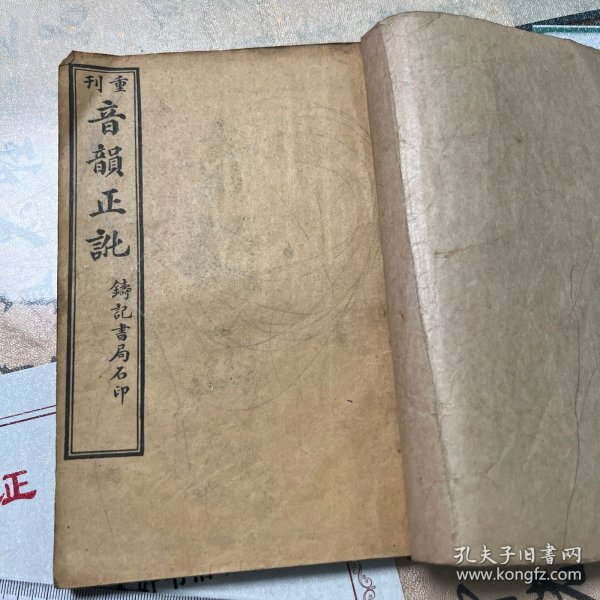 重刊
音韻正訛
鑄記書局石印
正
孔夫子旧书网
www.kongfz.com